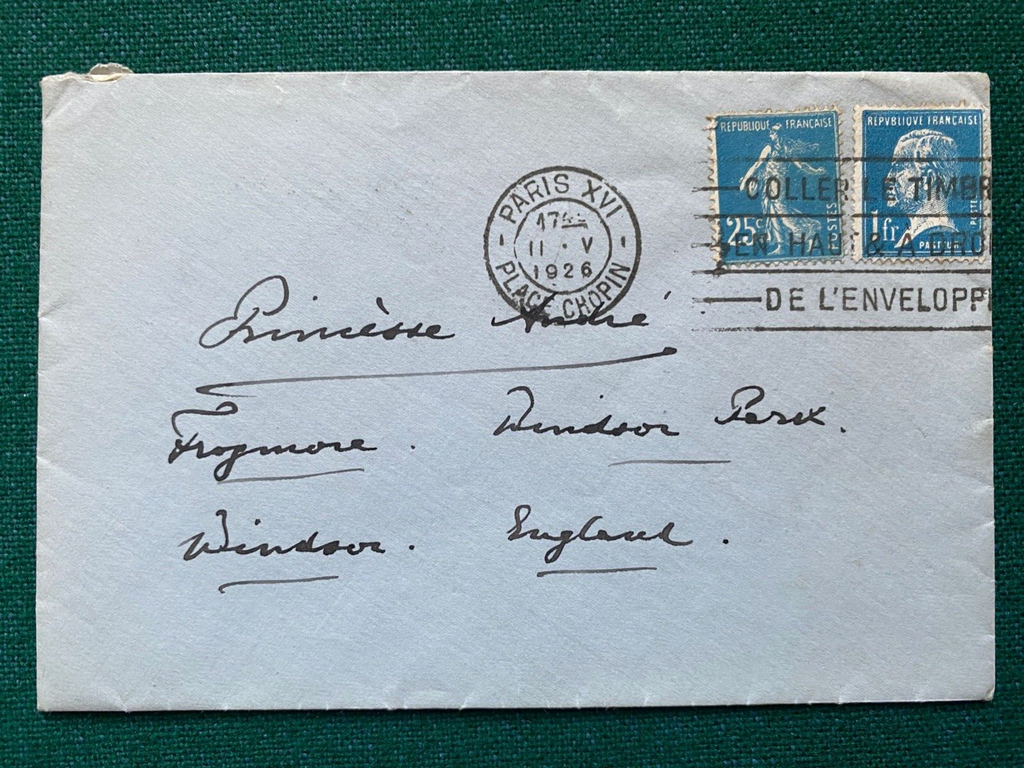 RÉPUBLIQUE FRANÇAISE
25c
POSTES
RÉPVBLIQVE FRANÇAISE
1fr
PASTEUR
PARIS XVI
11 · V
1926
PLACE CHOPIN
COLLER LE TIMBR
EN HAUT & A DRO
DE L'ENVELOPP
Princèsse André
Frogmore. Windsor Park.
Windsor. England.